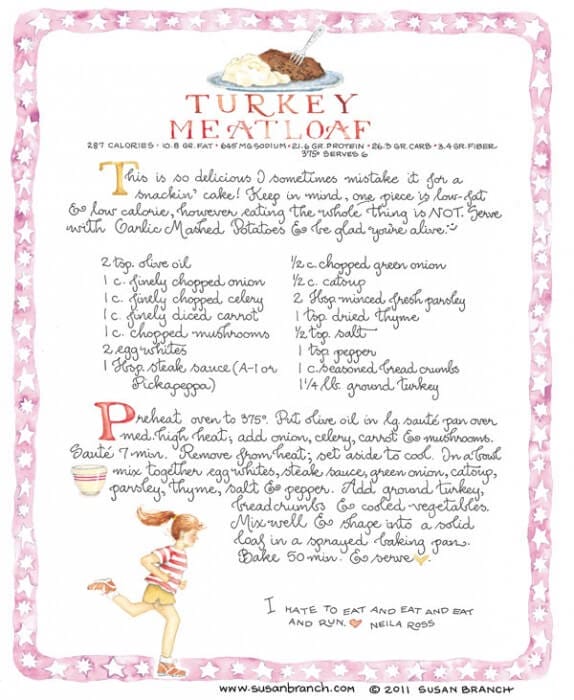 TURKEY
MEATLOAF
287 CALORIES • 10.8 GR. FAT • 645 MG SODIUM • 21.6 GR. PROTEIN • 26.3 GR. CARB • 3.4 GR. FIBER
375° SERVES 6
This is so delicious I sometimes mistake it for a
snackin' cake! Keep in mind, one piece is low-fat
& low calorie, however eating the whole thing is NOT. Serve
with Garlic Mashed Potatoes & be glad you're alive.
2 tsp. olive oil
1 c. finely chopped onion
1 c. finely chopped celery
1 c. finely diced carrot
1 c. chopped mushrooms
2 egg whites
1 Tbsp. steak sauce (A-1 or
Pickapeppa)
½ c. chopped green onion
½ c. catsup
2 Tbsp minced fresh parsley
1 tsp dried thyme
½ tsp. salt
1 tsp pepper
1 c. seasoned bread crumbs
1¼ lb. ground turkey
Preheat oven to 375°. Put olive oil in lg. sauté pan over
med. high heat; add onion, celery, carrot & mushrooms.
Sauté 7 min. Remove from heat; set aside to cool. In a bowl
mix together egg whites, steak sauce, green onion, catsup,
parsley, thyme, salt & pepper. Add ground turkey,
breadcrumbs & cooled vegetables.
Mix well & shape into a solid
loaf in a sprayed baking pan.
Bake 50 min. & serve
I HATE TO EAT AND EAT AND EAT
AND RUN. ♥ NEILA ROSS
www.susanbranch.com © 2011 SUSAN BRANCH